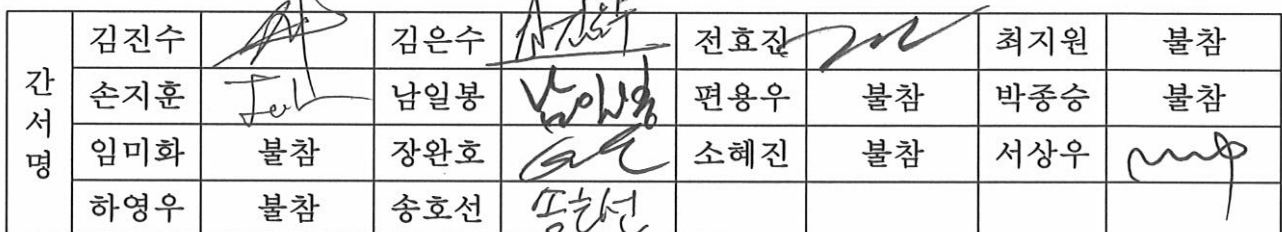 간서명
김진수 김은수 전효진 최지원 불참
손지훈 남일봉 남일봉 편용우 불참 박종승 불참
임미화 불참 장완호 소혜진 불참 서상우
하영우 불참 송호선 송호선